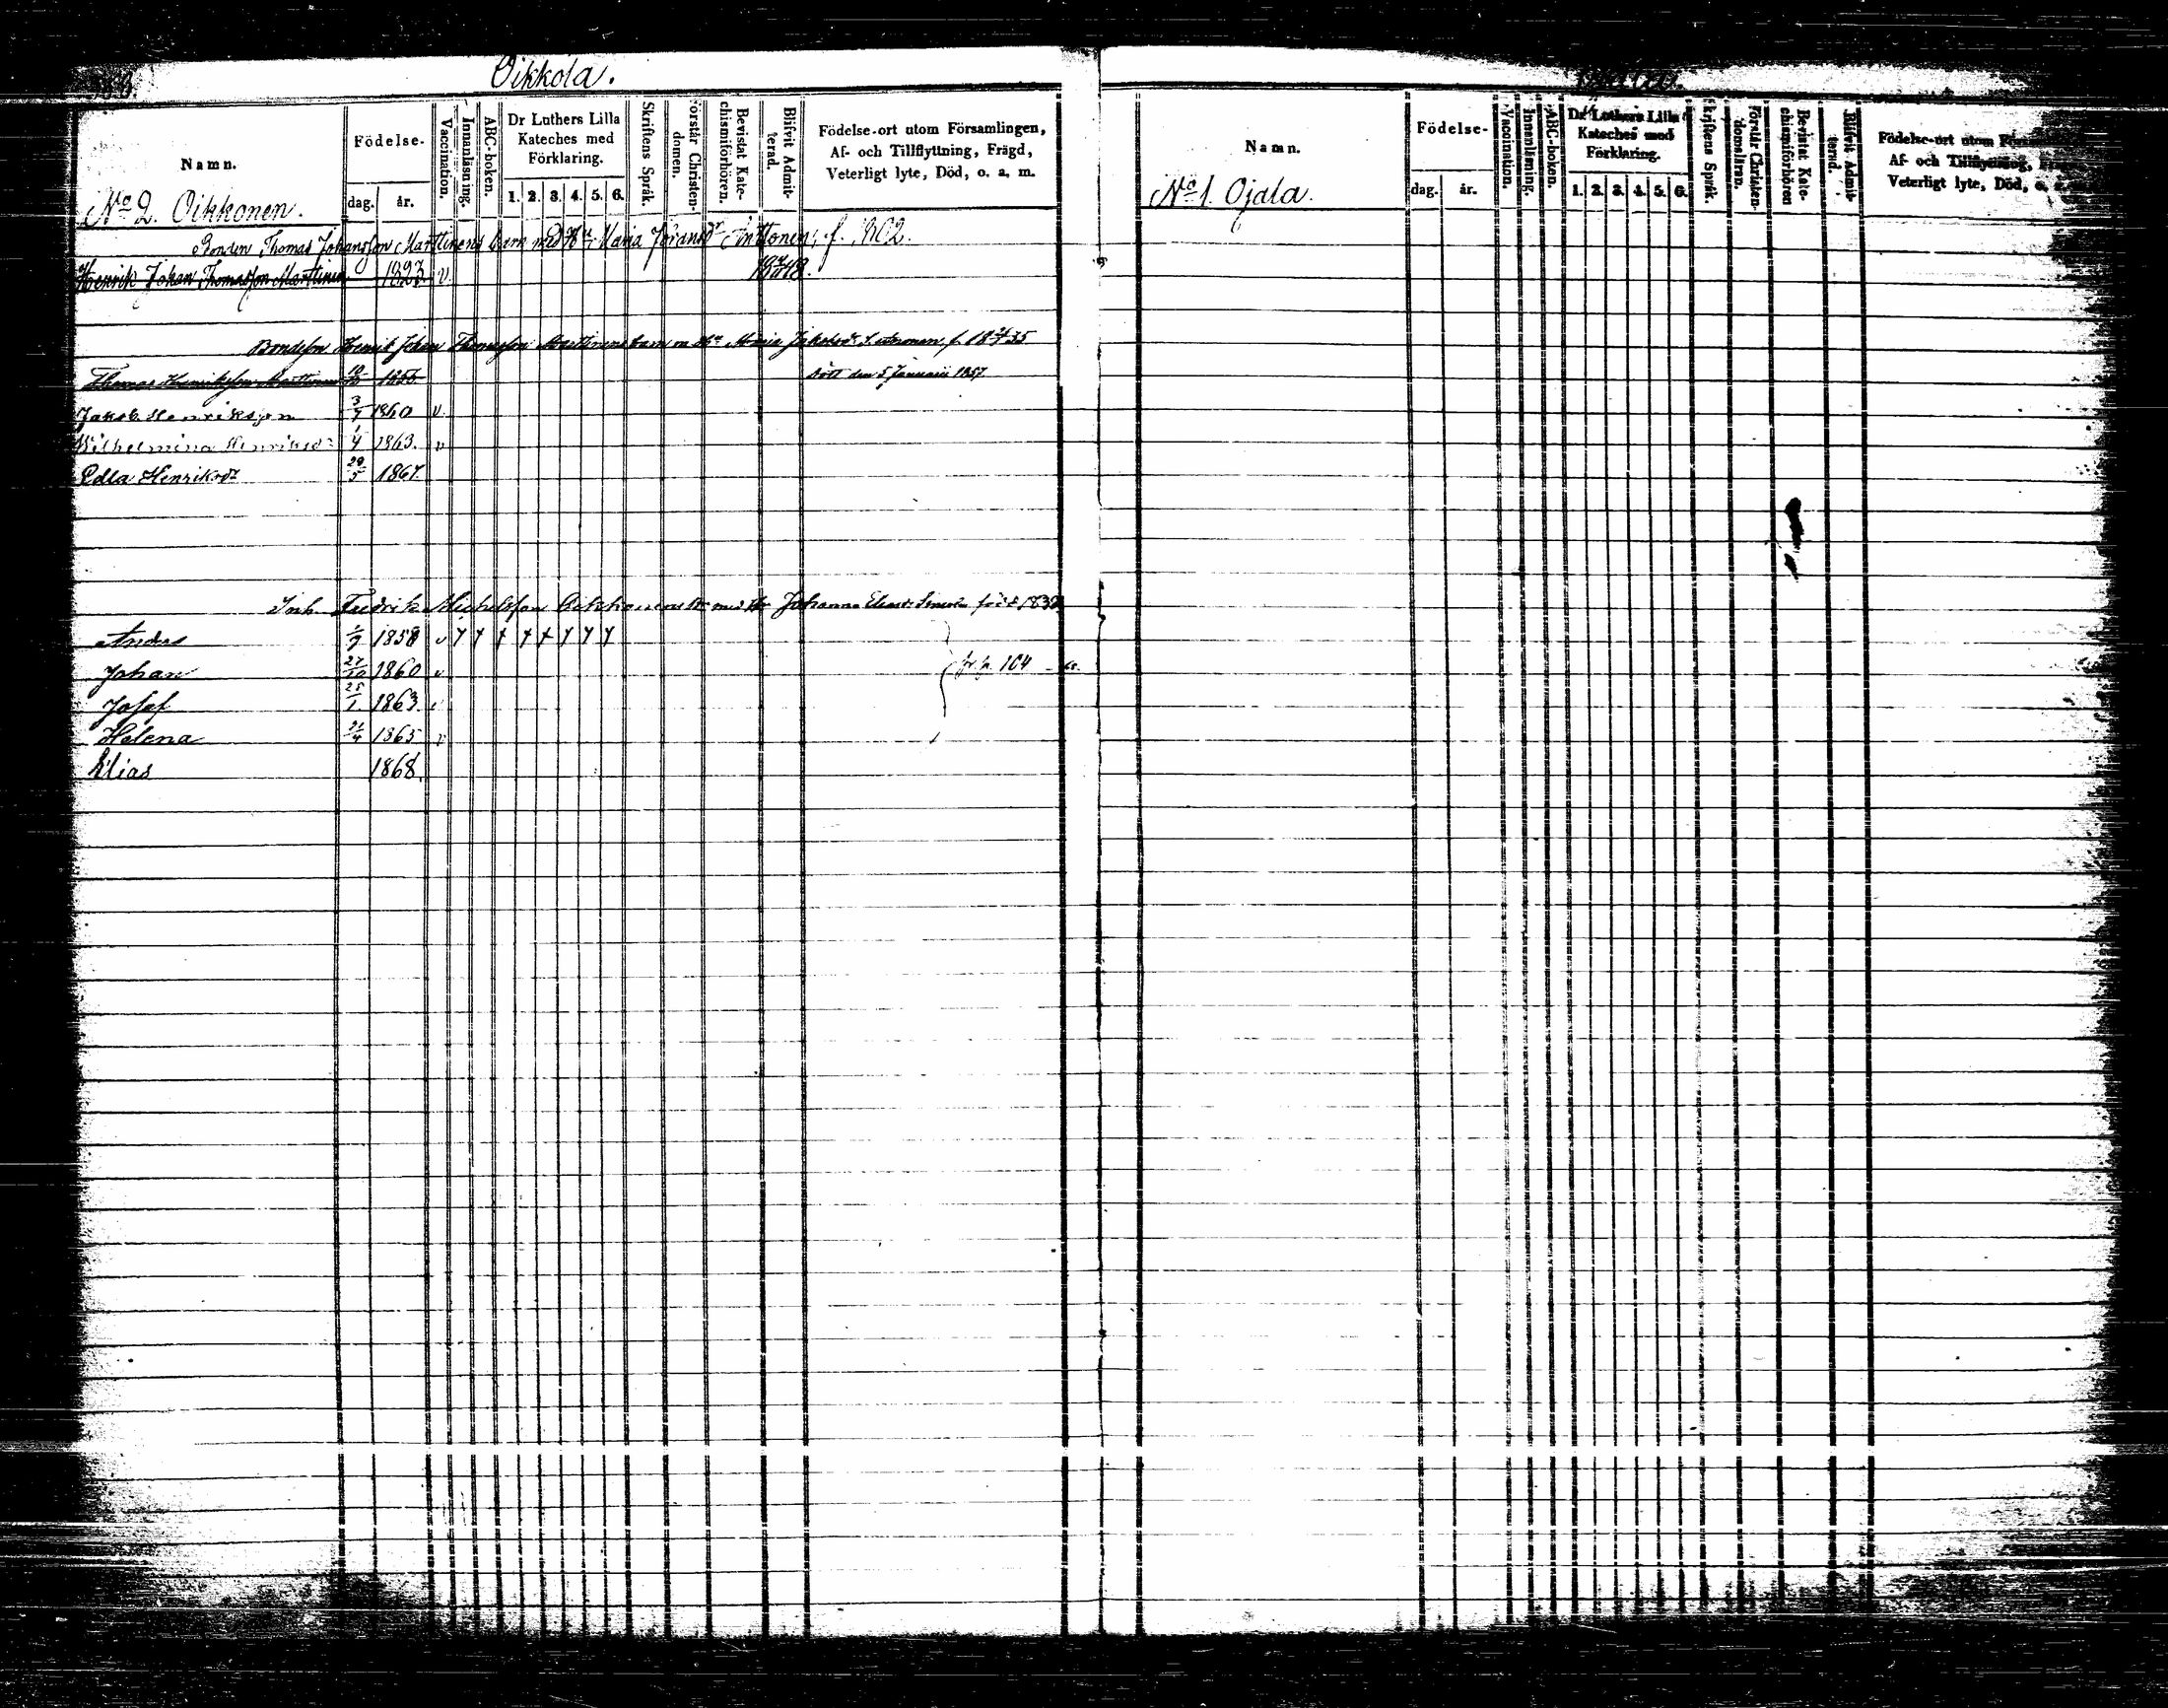 Oikkola.
Namn.
Födelse-
dag.
år.
Vaccination.
Innanläsning.
ABC-boken.
Dr Luthers Lilla
Kateches med
Förklaring.
1. 2. 3. 4. 5. 6.
Skriftens Språk.
Förstår Christen-
domen.
Bevistat Kate-
chismiförhören.
Blifvit Admit-
terad.
Födelse-ort utom Församlingen,
Af- och Tillflyttning, Frägd,
Veterligt lyte, Död, o. a. m.
No 2. Oikkonen.
Bonden Thomas Johansson Marttinens barn med Hu Maria Göransdr Anttonen, f. 1802.
Henrik Johan Thomasson Marttinen 1823. v.
Bondeson Henrik Johan Thomasson Marttinens barn m Hu Maria Jakobsdr f. 18 35
Thomas Henriksson Marttinen 10 1855 Död den 5 Januarii 1857.
Jakob Henriksson 3/7 1860 v.
Wilhelmina Henriksdr 1/4 1863. v
Edla Henriksdr 20/5 1867.
Inh. Fredrik Michelsson Oikkonens br med Hu Johanna född 1832
Anders 1/7 1858 v
Johan 27/10 1860 v fr. p. 104
Josef 25/1 1863. v
Helena 21/4 1865 v
Elias 1868.
Namn.
Födelse-
dag.
år.
Vaccination.
Innanläsning.
ABC-boken.
Dr Luthers Lilla
Kateches med
Förklaring.
1. 2. 3. 4. 5. 6.
Skriftens Språk.
Förstår Christen-
domsläran.
Bevistat Kate-
chismiförhören
Blifvit Admit-
terad.
Födelse-ort utom
Af- och Tillflyttning,
Veterligt lyte, Död, o. a.
No 1. Ojala.